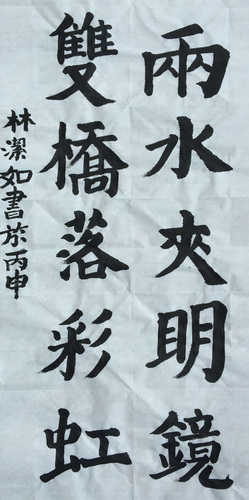 兩水夾明鏡
雙橋落彩虹
林潔如書於丙申